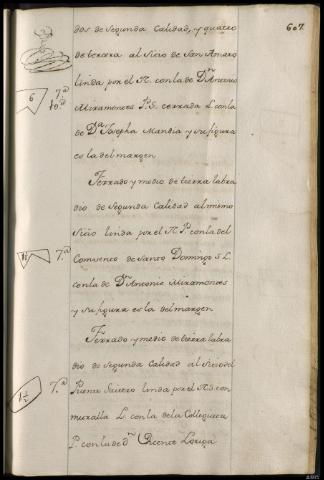 607
dos de segunda Calidad, y quatro
de tercera al Sitio de San Amaro
linda por el N. con la de Dn Antonio
6 7.a 10.a
Miramontes P. S. cerrada L. con la
de Da Josepha Mandia y su figura
es la del margen
Ferrado y medio de tierra labra
dio de segunda Calidad al mismo
Sitio linda por el N. P. con la del
1½ 7.a
Comvento de Santo Domingo S. L.
con la de Dn Antonio Miramontes
y su figura es la del margen
Ferrado y medio de tierra labra
dio de segunda Calidad al Sitio del
1½ 7.a
Puente linda por el N. S. con
muralla L. con la de la Collegiata
P. con la de dn Vicente Loriga